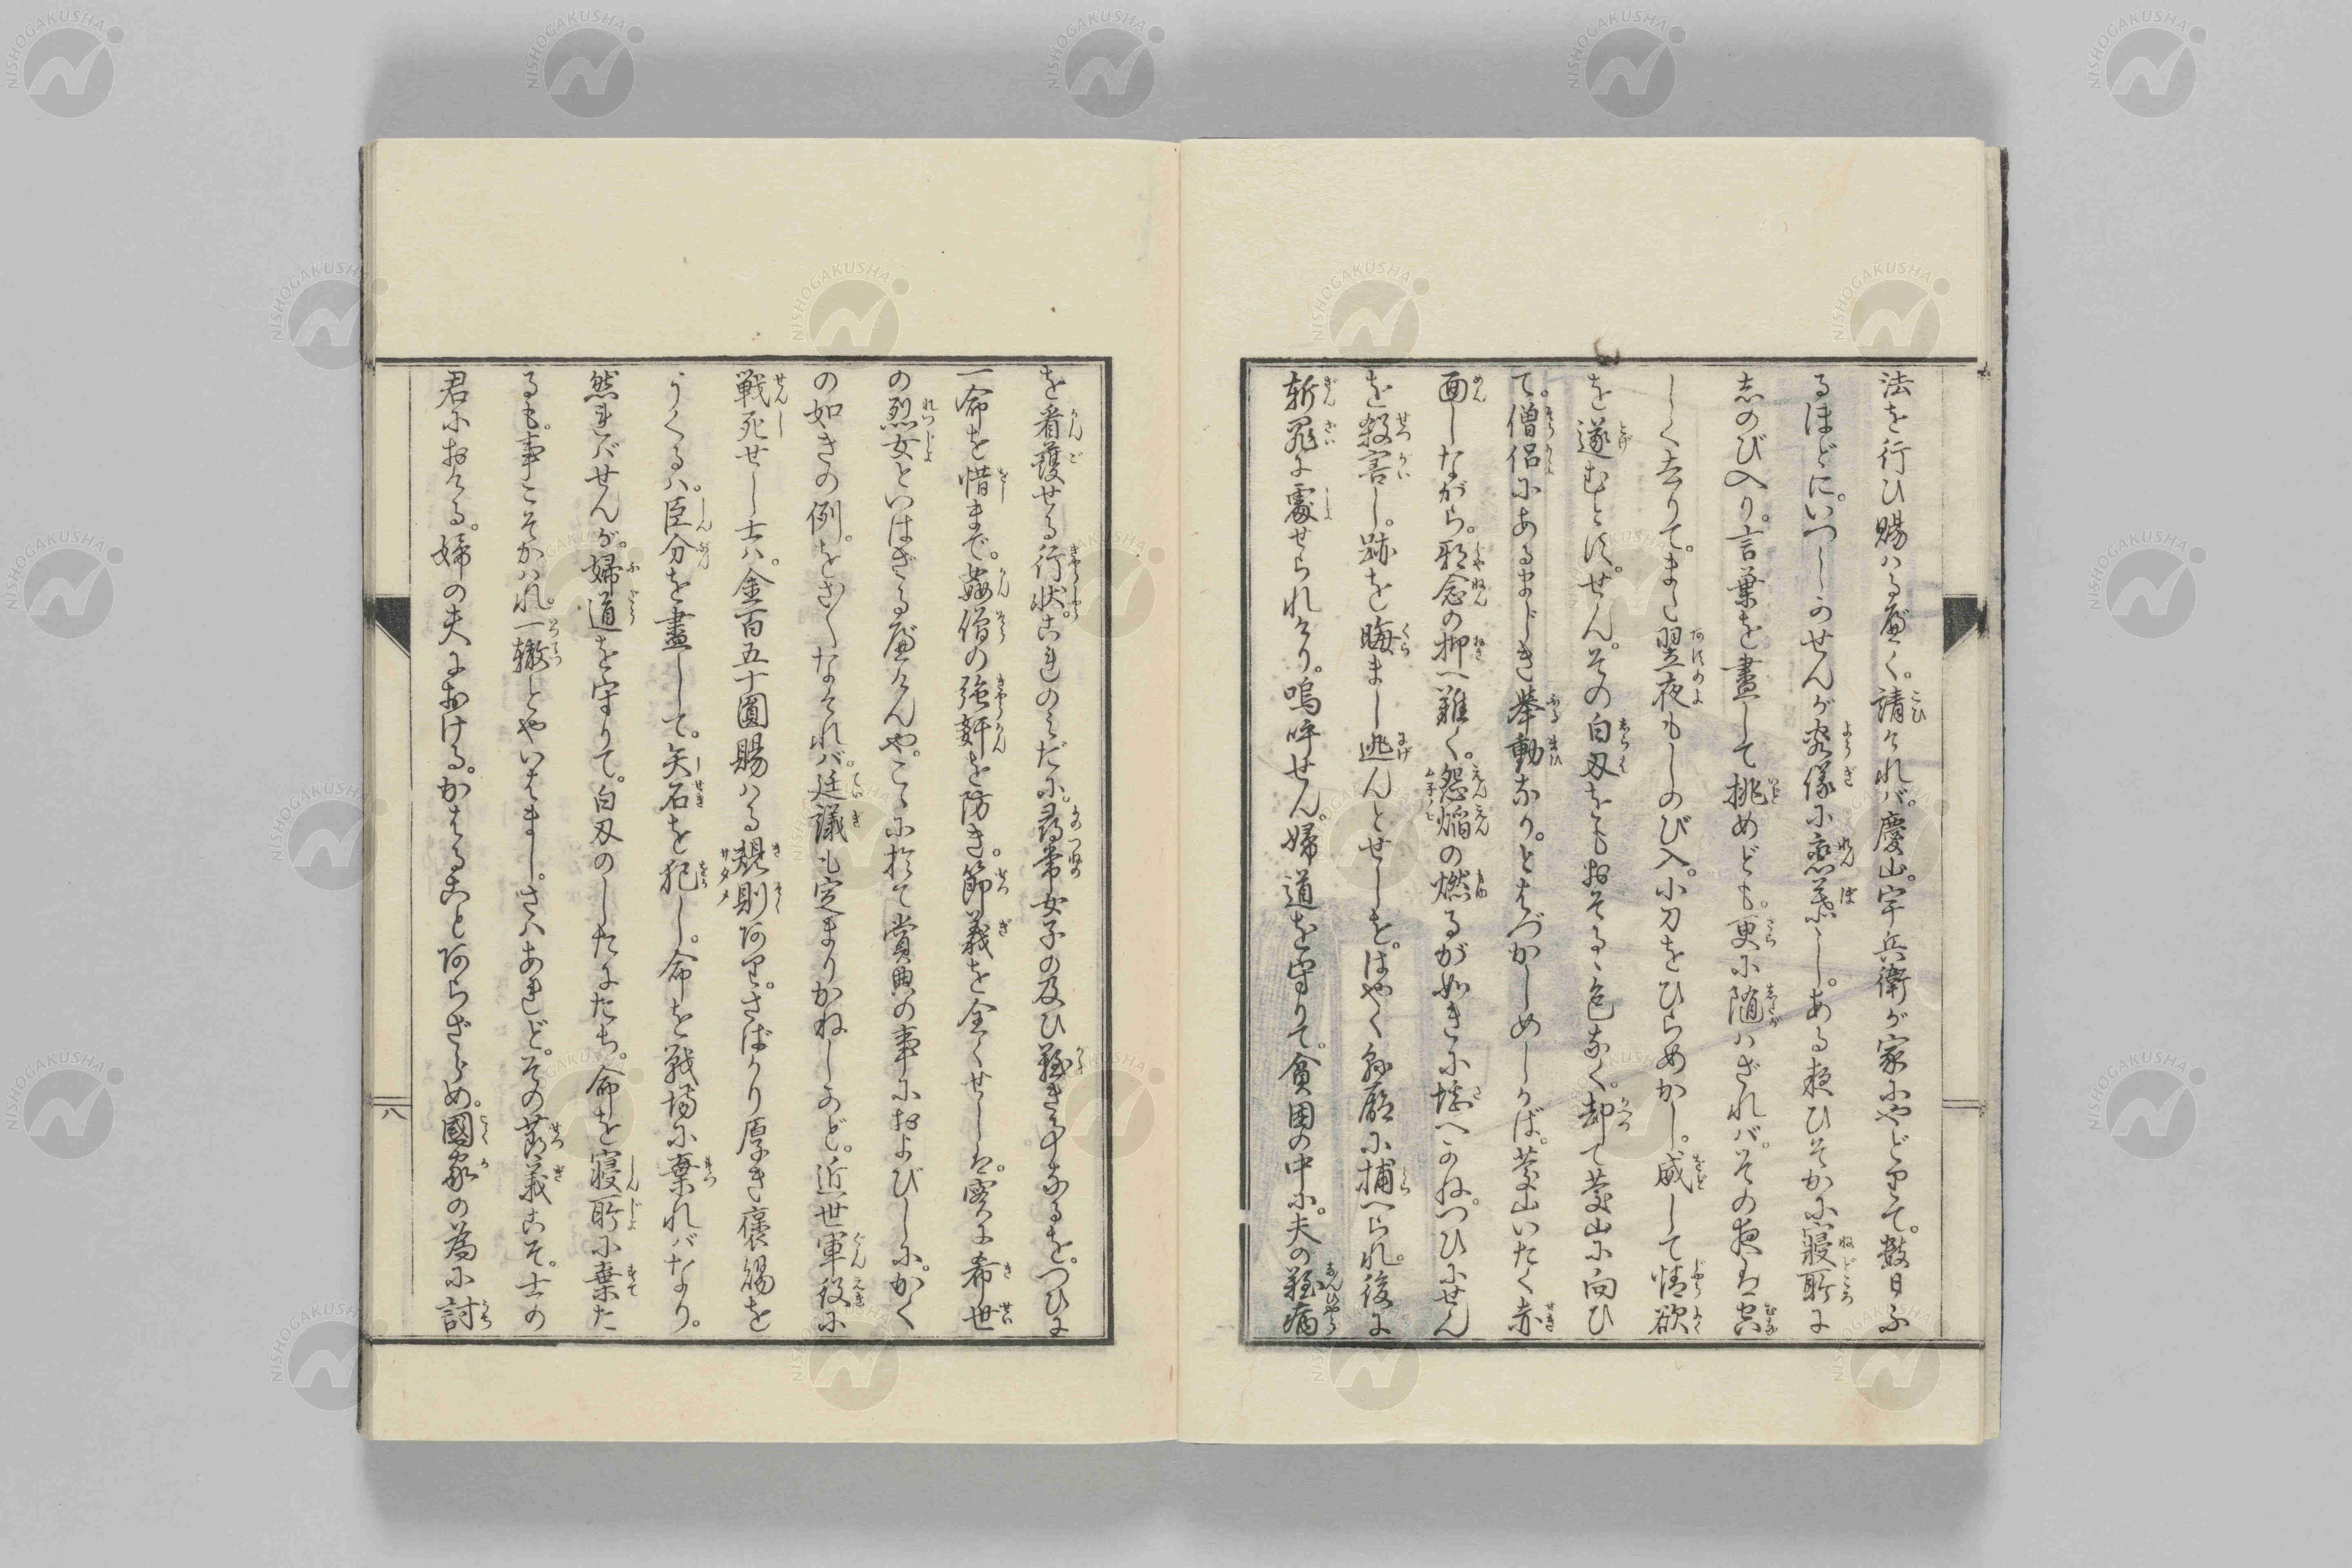 法を行ひ賜はる可く。請けれバ。慶山。宇兵衛が家にやどりて。数日ふ
るほどに。いつしかせんが容儀に恋慕し。ある夜ひそかに寝所に
志のび入り。言葉を盡して挑めども。更に随はざれバ。その夜は空
しく去りて。また翌夜もしのび入。小刀をひらめかし。威して情欲
を遂むとす。せん。その白刃をもおそるゝ色なく。却て慶山に向ひ
て。僧侶にあるまじき挙動なり。とはづかしめしかば。慶山いたく赤
面しながら。邪念の抑へ難く。怨焔の燃るが如きに堪へかね。つひにせん
を殺害し。跡を晦まし逃んとせしを。はやく縣廳に捕へられ。後に
斬罪に處せられけり。嗚呼せん。婦道を守りて。貧困の中に。夫の難病
を看護せる行状。これのみだに。尋常女子の及ひ難き事なるを。つひに
一命を惜まで。姦僧の強奸を防き。節義を全くせしは。実に希世
の烈女といはざる可けんや。こゝに於て賞典の事におよびしに。かく
の如きの例。をさ〳〵なそれバ。廷議も定まりかねしかど。近世軍役に
戦死せし士ハ。金百五十圓賜ハる規則あり。さばかり厚き褒賜を
うくるハ。臣分を盡しして。矢石を犯し。命を戦場に棄れバなり。
然れバせんが。婦道を守りて。白刃のしたにたち。命を寝所に棄た
るも。事こそかハれ。一轍とやいはまし。さハあれど。その節義こそ。士の
君におけるも。婦の夫における。かはることあらざらめ。國家の為に討
八
NISHOGAKUSHA